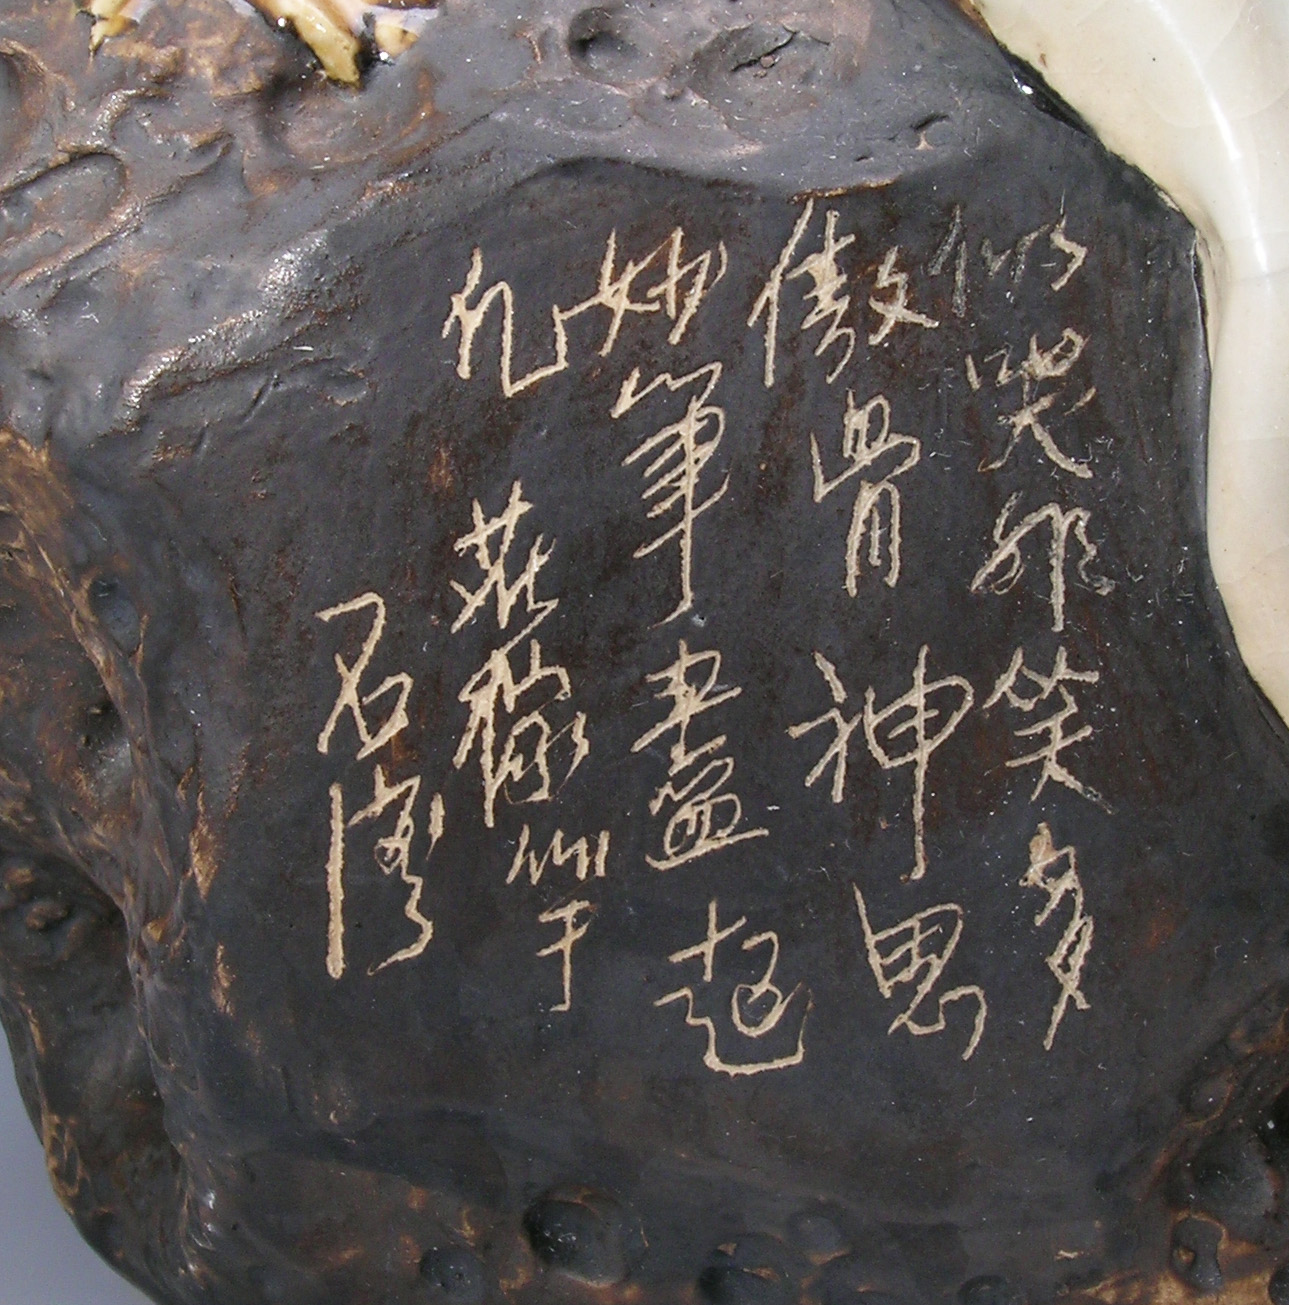 似哭非笑多
傲骨神思
妙筆盡超
凡
石灣